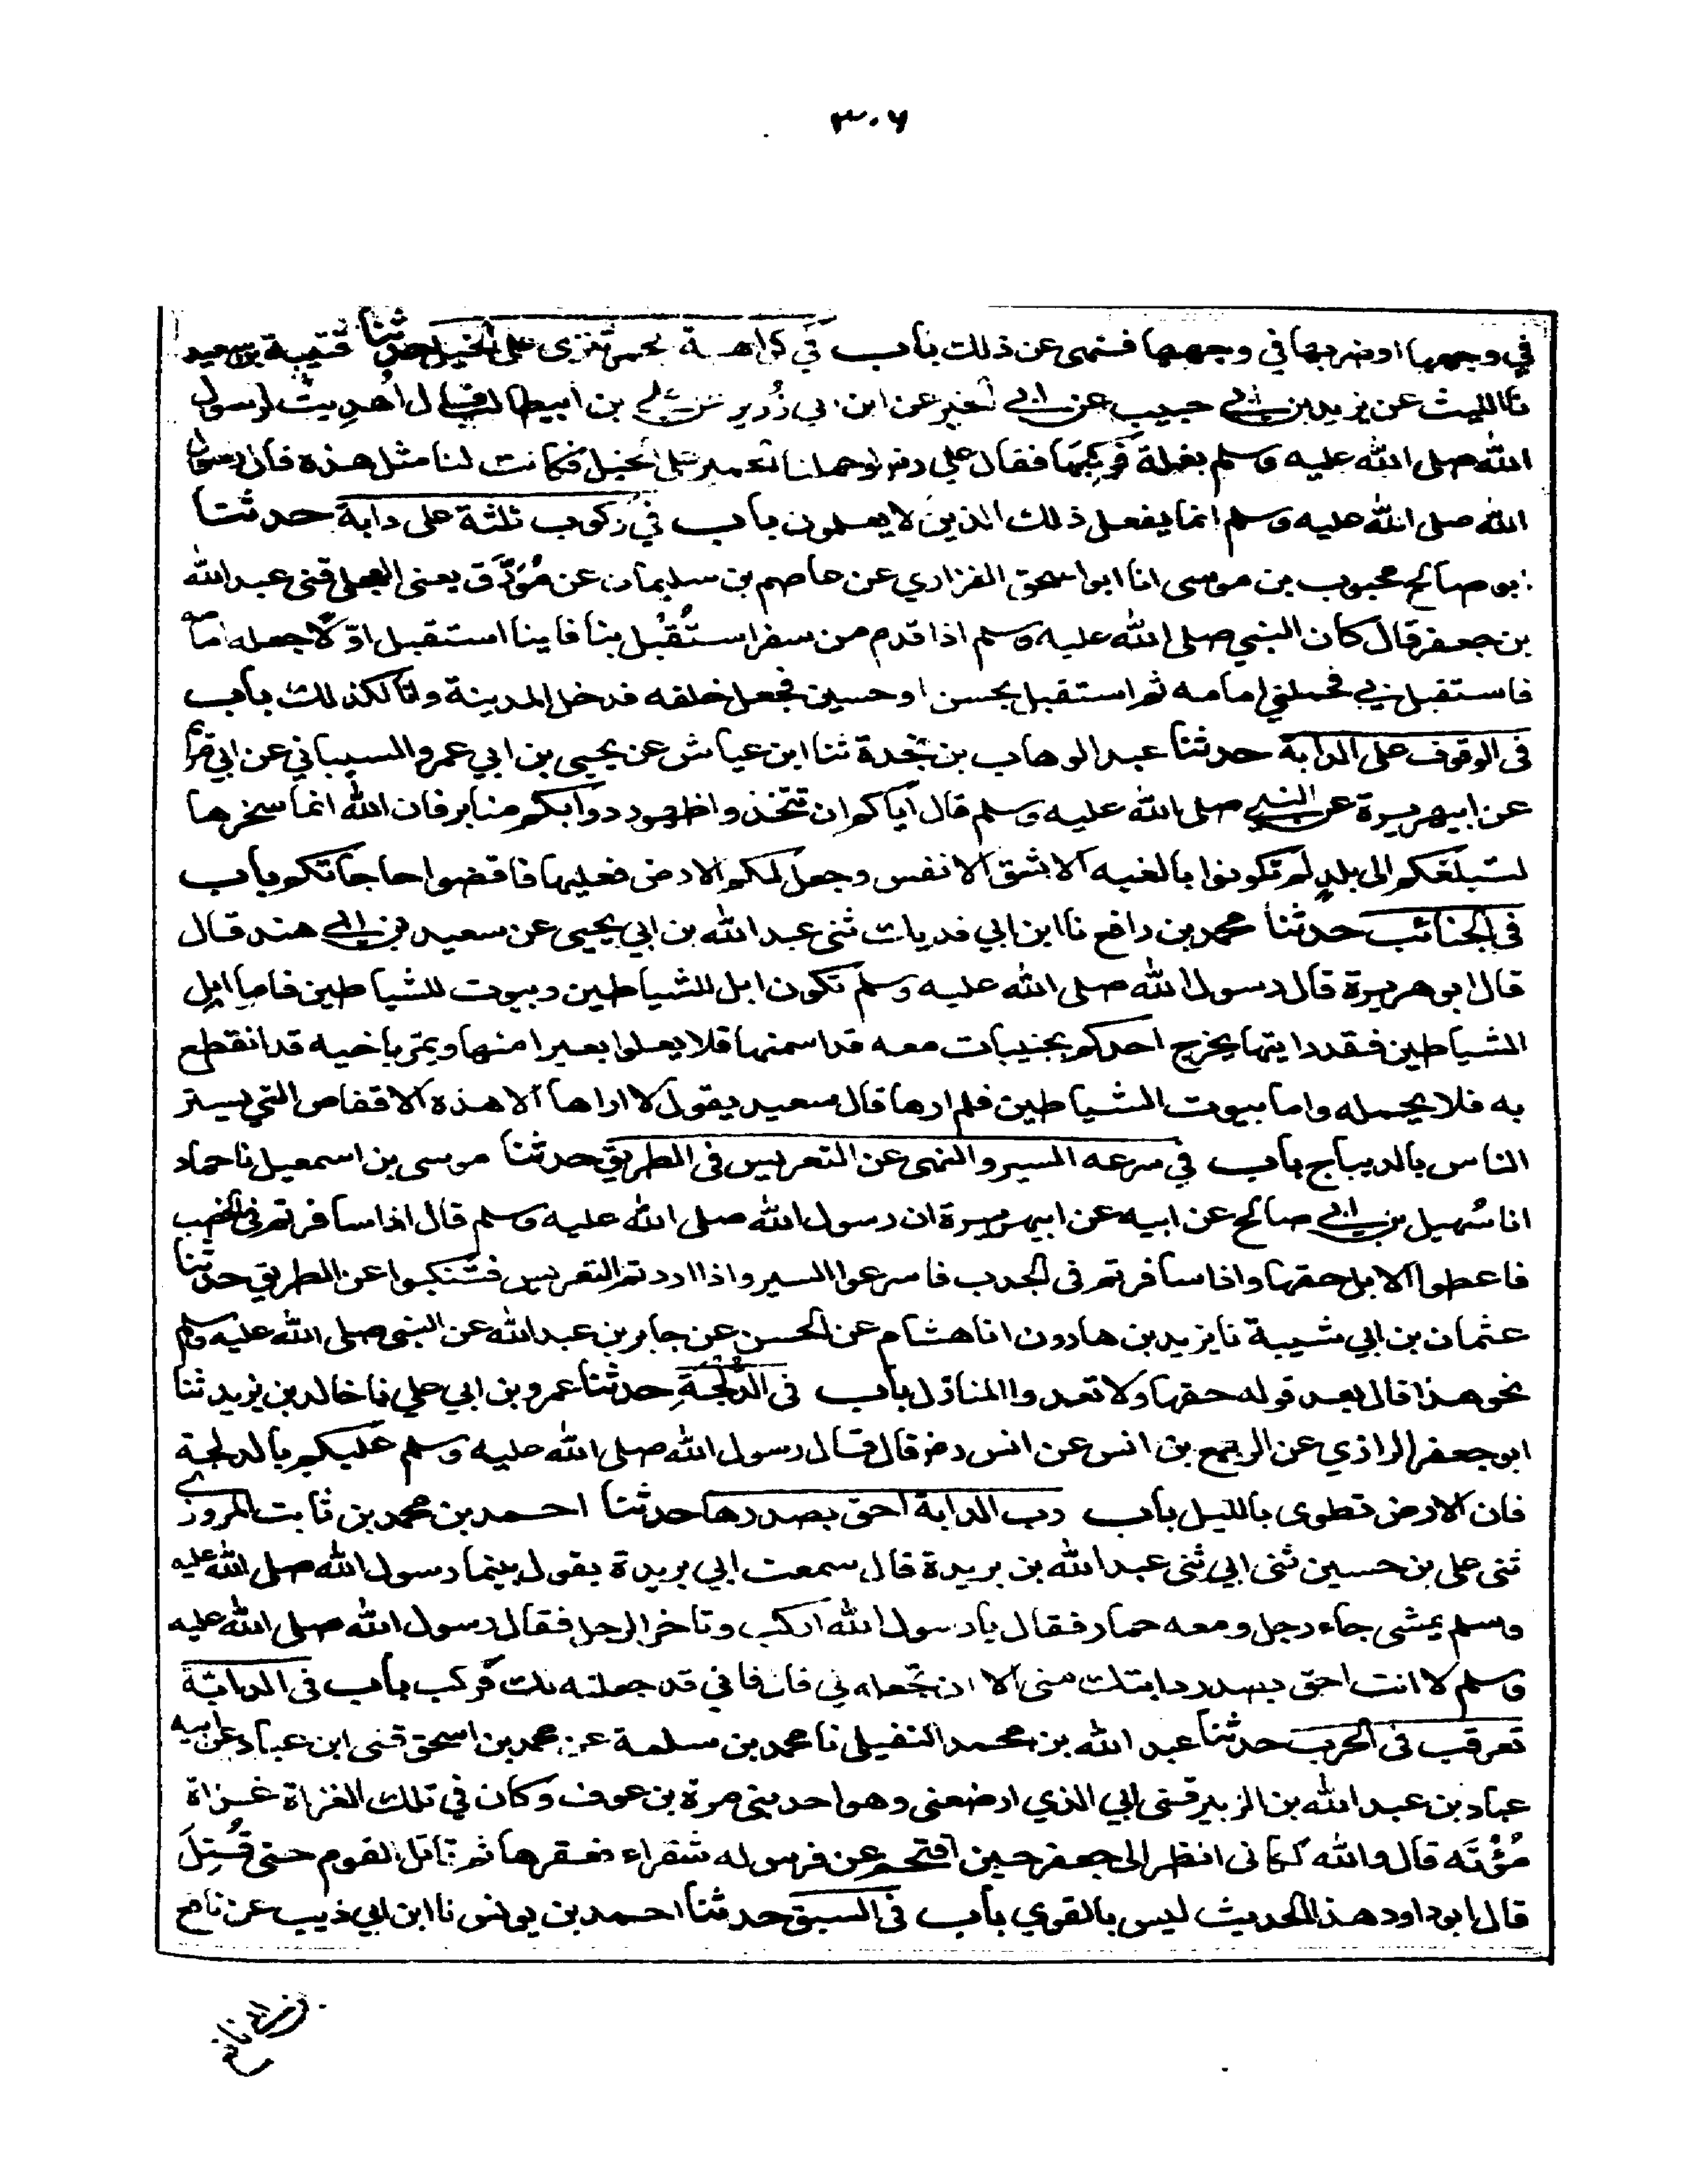 ٣٠٦
في وجهها او ضربها في وجهها فنهى عن ذلك باب في كراهية الحمر تنزى على الخيل حدثنا قتيبة بن سعيد
نا الليث عن يزيد بن ابي حبيب عن ابي الخير عن ابن ابي زُرير عن علي بن ابيطالب قال اُهدِيت لرسول
الله صلى الله عليه وسلم بغلة فَركِبَها فقال علي رضـ لو حملنا الحمير على الخيل فكانت لنا مثل هذه قال رسول
الله صلى الله عليه وسلم انما يفعل ذلك الذين لا يعلمون باب في ركوب ثلثة على دابة حدثنا
ابو صالح محبوب بن موسى انا ابو اسحق الفزاري عن عاصم بن سليمان عن مُوَرّق يعني العجلي ثنى عبد الله
بن جعفر قال كان النبي صلى الله عليه وسلم اذا قدم من سفر استُقْبل بنا فاينا استقبل اوّلا جعله امامه
فاستقبل بي فحملني امامه ثم استقبل بحسن او حسين فجعل خلفه فدخل المدينة وانا لكذلك باب
فى الوقوف على الدابة حدثنا عبد الوهاب بن نجدة ثنا ابن عياش عن يحيى بن ابي عمرو السيباني عن ابي مريم
عن ابيهريرة عن النبي صلى الله عليه وسلم قال اياكم ان تتخذوا ظهور دوابكم منابر فان الله انما سخرها
لتبلغكم الى بلدٍ لم تكونوا بالغيه الا بشق الانفس وجعل لكم الارض فعليها فاقضوا حاجاتكم باب
فى الجنائب حدثنا محمد بن رافع نا ابن ابي فديك ثنى عبد الله بن ابي يحيى عن سعيد بن ابي هند قال
قال ابو هريرة قال رسول الله صلى الله عليه وسلم تكون ابل للشياطين وبيوت للشياطين فاما ابل
الشياطين فقد رايتها يخرج احدكم بجنيبات معه قد اسمنها فلا يعلوا بعيرا منها ويمرّ باخيه قد انقطع
به فلا يحمله واما بيوت الشياطين فلم ارها قال سعيد يقول لا اراها الا هذه الاقفاص التي يستر
الناس بالديباج باب في سرعه السير والنهى عن التعريس فى الطريق حدثنا موسى بن اسمعيل نا حماد
انا سُهيل بن ابي صالح عن ابيه عن ابيهريرة ان رسول الله صلى الله عليه وسلم قال اذا سافرتم فى الخصب
فاعطوا الابل حقها واذا سافرتم فى الجدب فاسرعوا السير واذا اردتم التعريس فتنكبوا عن الطريق حدثنا
عثمان بن ابي شيبة نا يزيد بن هارون انا هشام عن الحسن عن جابر بن عبد الله عن النبى صلى الله عليه وسلم
نحو هذا قال بعد قوله حقها ولا تعدوا المنازل باب فى الدُّلْجَةِ حدثنا عمرو بن ابي علي نا خالد بن يزيد ثنا
ابو جعفر الرازي عن الربيع بن انس عن انس رضـ قال قال رسول الله صلى الله عليه وسلم عليكم بالدلجة
فان الارض تطوى بالليل باب رب الدابة احق بصدرها حدثنا احمد بن محمد بن ثابت المروزي
ثنى على بن حسين ثنى ابي ثنى عبد الله بن بريدة قال سمعت ابي بريدة يقول بينما رسول الله صلى الله عليه
وسلم يمشى جاء رجل ومعه حمار فقال يا رسول الله اركب وتاخر الرجل فقال رسول الله صلى الله عليه
وسلم لا انت احق بصدر دابتك منى الا ان تجعله لي قال فاني قد جعلته لك فركب باب فى الدابّة
تعرقب فى الحرب حدثنا عبد الله بن محمد النفيلى نا محمد بن سلمة عن محمد بن اسحق ثنى ابن عباد عن ابيه
عباد بن عبد الله بن الزبير ثنى ابي الذي ارضعنى وهو احد بنى مرة بن عوف وكان في تلك الغزاة غزاة
مُؤْتَه قال والله لكانى انظر الى جعفر حين اقتحم عن فرس له شقراء فعقرها ثم قاتل القوم حتى قُتِلَ
قال ابو داود هذا الحديث ليس بالقوي باب فى السبق حدثنا احمد بن يونس نا ابن ابي ذيب عن نافع